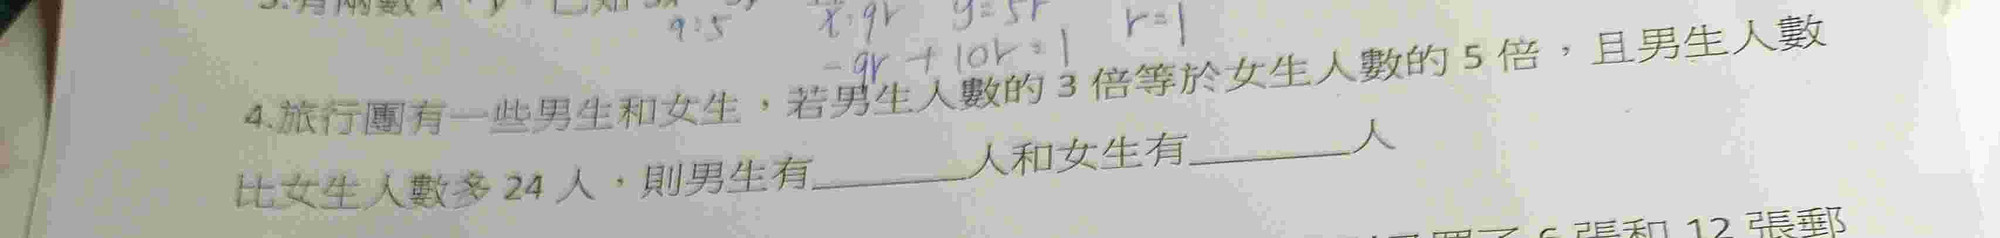 3.有兩數 x、y，已知
9:5 x:9r y=5r r=1
-9r + 10r = 1
4.旅行團有一些男生和女生，若男生人數的 3 倍等於女生人數的 5 倍，且男生人數
比女生人數多 24 人，則男生有______人和女生有______人
6 張和 12 張郵